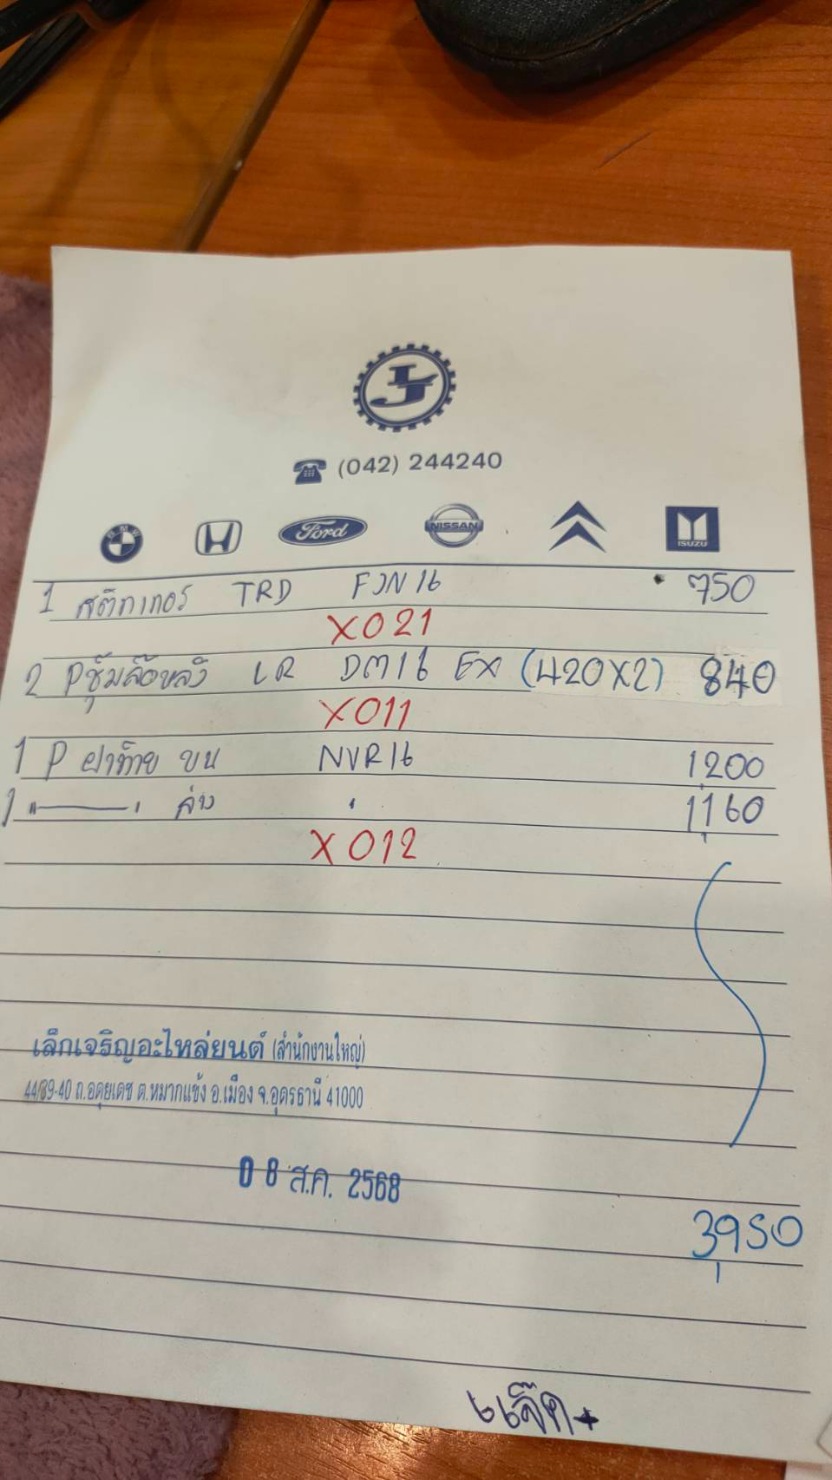 (042) 244240
BMW Ford NISSAN ISUZU
1 สติกเกอร์ TRD FJN16 750
X021
2 Pซุ้มล้อหลัง LR DM16 EX (420X2) 840
X011
1 P ฝาท้าย บน NVR16 1,200
1 " ———— " ล่าง " 1,160
X012
เล็กเจริญอะไหล่ยนต์ (สำนักงานใหญ่)
44/39-40 ถ.อดุยเดช ต.หมากแข้ง อ.เมือง จ.อุดรธานี 41000
08 ส.ค. 2568
3,950